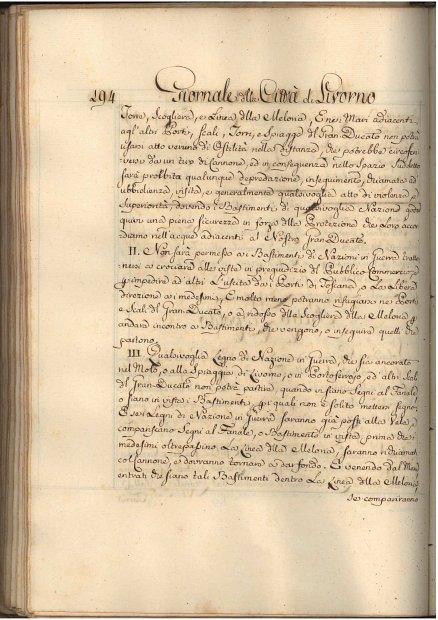 194 Giornale della Città di Livorno
Torre, Scogliera, e Linea della Meloria, E nei Mari adiacenti
agl'altri Porti, Scali, Torri, e Spiagge del Gran Ducato non potrà
usarsi atto veruno di Ostilità nella distanza, che potrebbe circoscri-
versi da un tiro di Cannone, ed in conseguenza nello Spazio Suddetto
sarà proibita qualunque depredazione, inseguimento, chiamata ad
ubbidienza visita, e generalmente qualsivoglia atto di violenza, e
Superiorità, dovendo i Bastimenti di qualsivoglia Nazione gode-
quivi una piena sicurezza in forza della Protezione che loro accor-
diamo nell'acque adiacenti al Nostro Gran Ducato.
II. Non sarà permesso ai Bastimenti di Nazioni in Guerra tratte-
nersi a crociare alla vista in pregiudizio del Pubblico Commercio,
impedire ad altri l'uscita dai Porti di Toscana, o la libera
direzione ai medesimi, E molto meno potranno rifugiarsi nei Porti
e Scali del Gran Ducato, o a ridosso della Scogliera della Meloria p
andare incontro a Bastimenti, che vengono, o inseguire quelli che
partono.
III. Qualsivoglia Legno di Nazione in Guerra, che sia ancorato
nel Molo, o alla Spiaggia di Livorno, o in Portoferrajo, ed altri Scali
del Gran Ducato non potrà partire, quando vi siano Segni al Fanale,
o siano in vista i Bastimenti, p i quali non è solito mettersi segno,
E se i Legni di Nazione in Guerra saranno già posti alla Vela, e
compariscano Segni al Fanale, o Bastimento in vista, prima che i
medesimi oltrepassino la Linea della Meloria, saranno richiamati
col Cannone, e dovranno tornare a dar fondo. E venendo dal Mare
entrati che siano tali Bastimenti dentro la Linea della Meloria
se compariranno